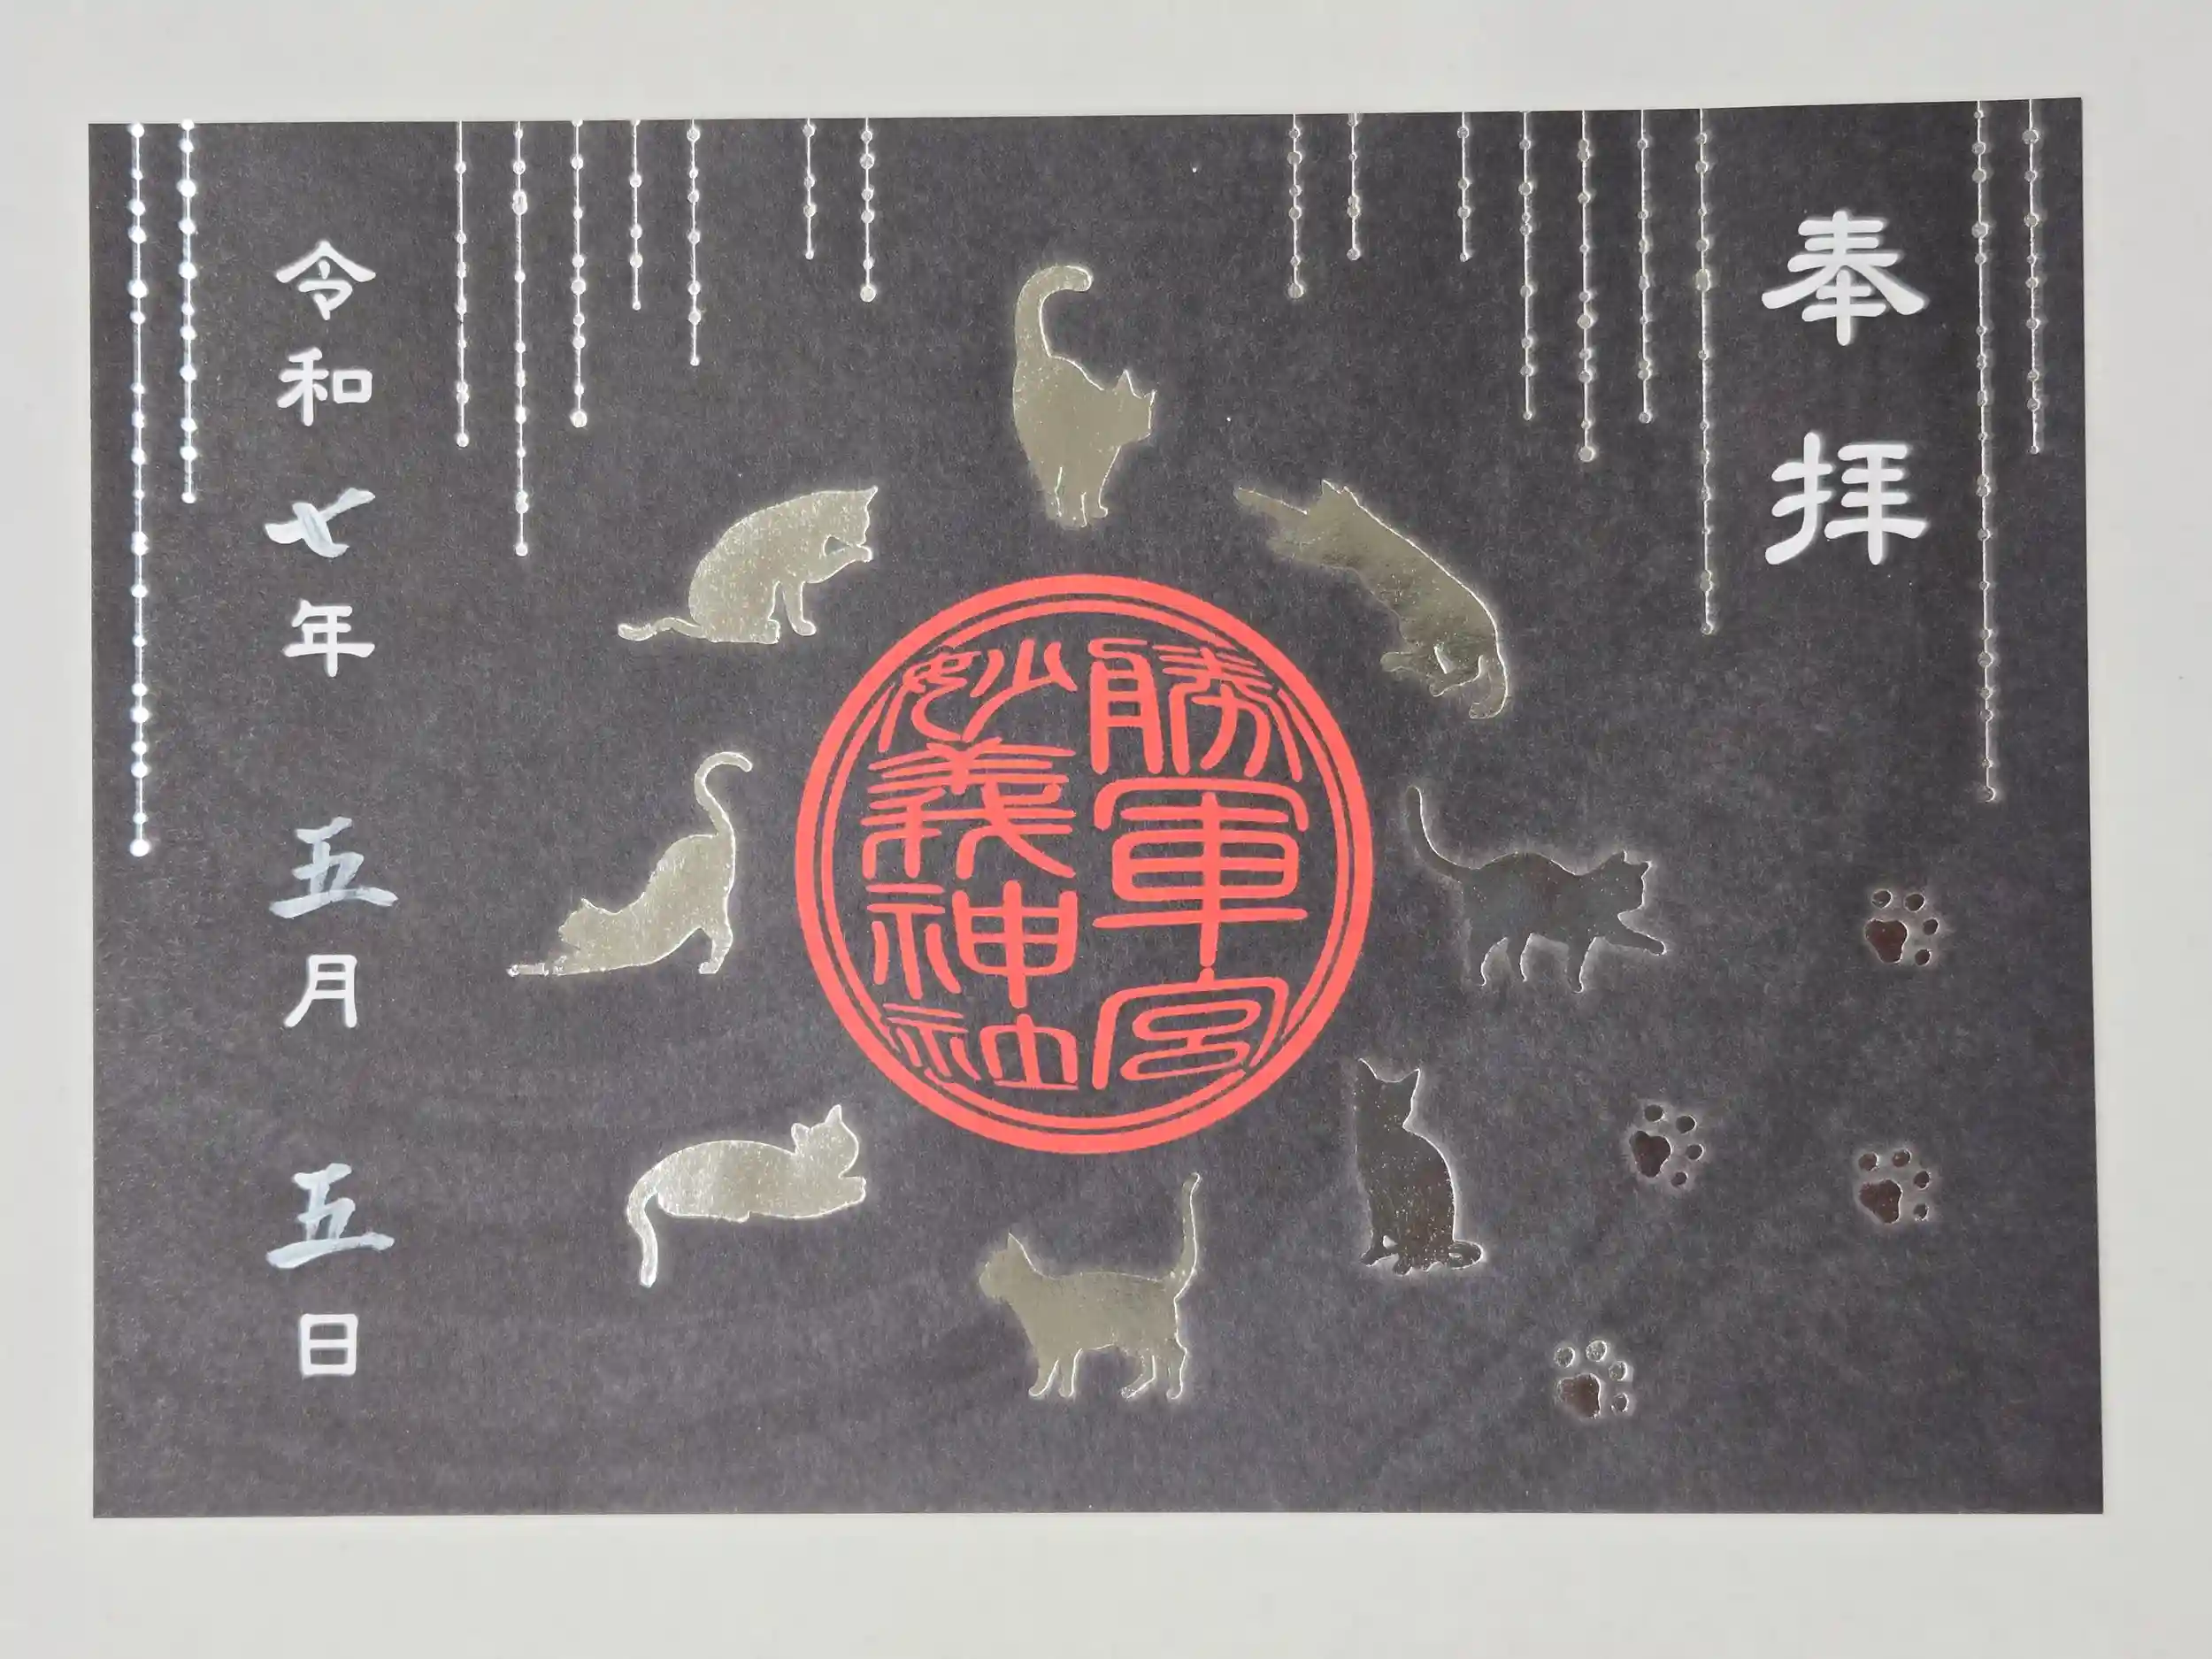 奉拝
勝軍宮
妙義神社
令和七年 五月 五日